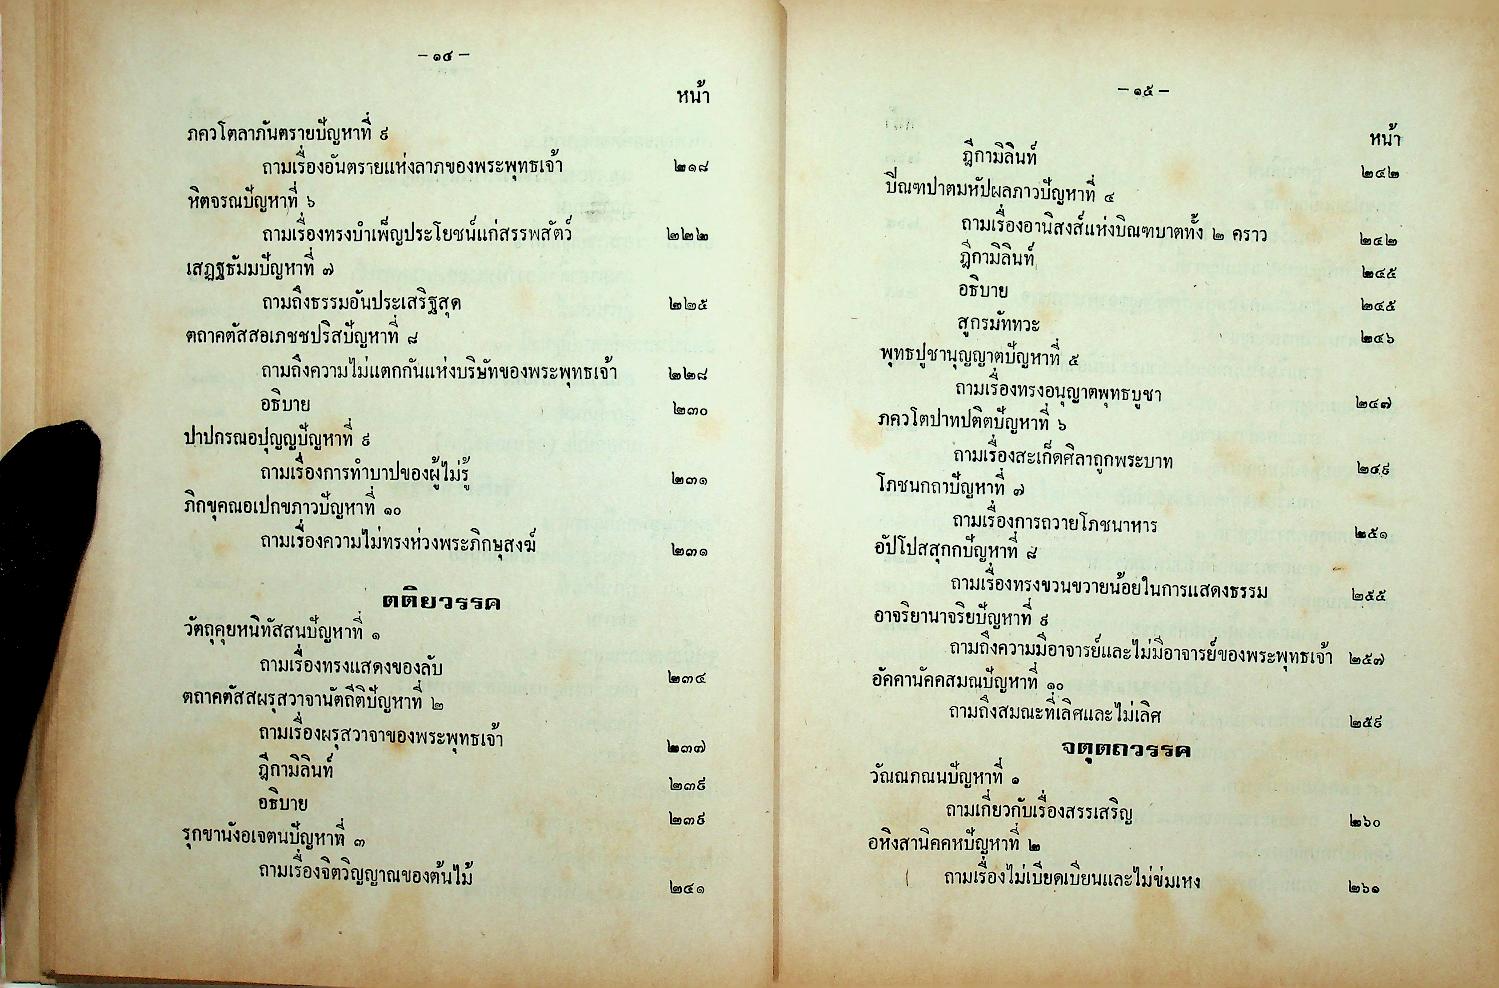 – ๑๔ –
หน้า
ภควโตลาภันตรายปัญหาที่ ๕
ถามเรื่องอันตรายแห่งลาภของพระพุทธเจ้า ๒๑๘
หิตจรณปัญหาที่ ๖
ถามเรื่องทรงบำเพ็ญประโยชน์แก่สรรพสัตว์ ๒๒๒
เสฏฐธัมมปัญหาที่ ๗
ถามถึงธรรมอันประเสริฐสุด ๒๒๕
ตถาคตัสสอเภชชปริสปัญหาที่ ๘
ถามถึงความไม่แตกกันแห่งบริษัทของพระพุทธเจ้า ๒๒๘
อธิบาย ๒๓๐
ปาปกรณอปุญญปัญหาที่ ๙
ถามเรื่องการทำบาปของผู้ไม่รู้ ๒๓๑
ภิกขุคณอเปกขภาวปัญหาที่ ๑๐
ถามเรื่องความไม่ทรงห่วงพระภิกษุสงฆ์ ๒๓๑
ตติยวรรค
วัตถุคุยหนิทัสสนปัญหาที่ ๑
ถามเรื่องทรงแสดงของลับ ๒๓๔
ตถาคตัสสผรุสวาจานัตถีติปัญหาที่ ๒
ถามเรื่องผรุสวาจาของพระพุทธเจ้า ๒๓๗
ฎีกามิลินท์ ๒๓๙
อธิบาย ๒๓๙
รุกขานังอเจตนปัญหาที่ ๓
ถามเรื่องจิตวิญญาณของต้นไม้ ๒๔๑
– ๑๕ –
หน้า
ฎีกามิลินท์ ๒๔๒
บิณฑปาตมหัปผลภาวปัญหาที่ ๔
ถามเรื่องอานิสงส์แห่งบิณฑบาตทั้ง ๒ คราว ๒๔๒
ฎีกามิลินท์ ๒๔๕
อธิบาย ๒๔๕
สูกรมัททวะ ๒๔๖
พุทธปูชานุญญาตปัญหาที่ ๕
ถามเรื่องทรงอนุญาตพุทธบูชา ๒๔๗
ภควโตปาทปติตปัญหาที่ ๖
ถามเรื่องสะเก็ดศิลาถูกพระบาท ๒๔๙
โภชนกถาปัญหาที่ ๗
ถามเรื่องการถวายโภชนาหาร ๒๕๑
อัปโปสสุกกปัญหาที่ ๘
ถามเรื่องทรงขวนขวายน้อยในการแสดงธรรม ๒๕๕
อาจริยานาจริยปัญหาที่ ๙
ถามถึงความมีอาจารย์และไม่มีอาจารย์ของพระพุทธเจ้า ๒๕๗
อัคคานัคคสมณปัญหาที่ ๑๐
ถามถึงสมณะที่เลิศและไม่เลิศ ๒๕๙
จตุตถวรรค
วัณณภณนปัญหาที่ ๑
ถามเกี่ยวกับเรื่องสรรเสริญ ๒๖๐
อหิงสานิคคหปัญหาที่ ๒
ถามเรื่องไม่เบียดเบียนและไม่ข่มเหง ๒๖๑